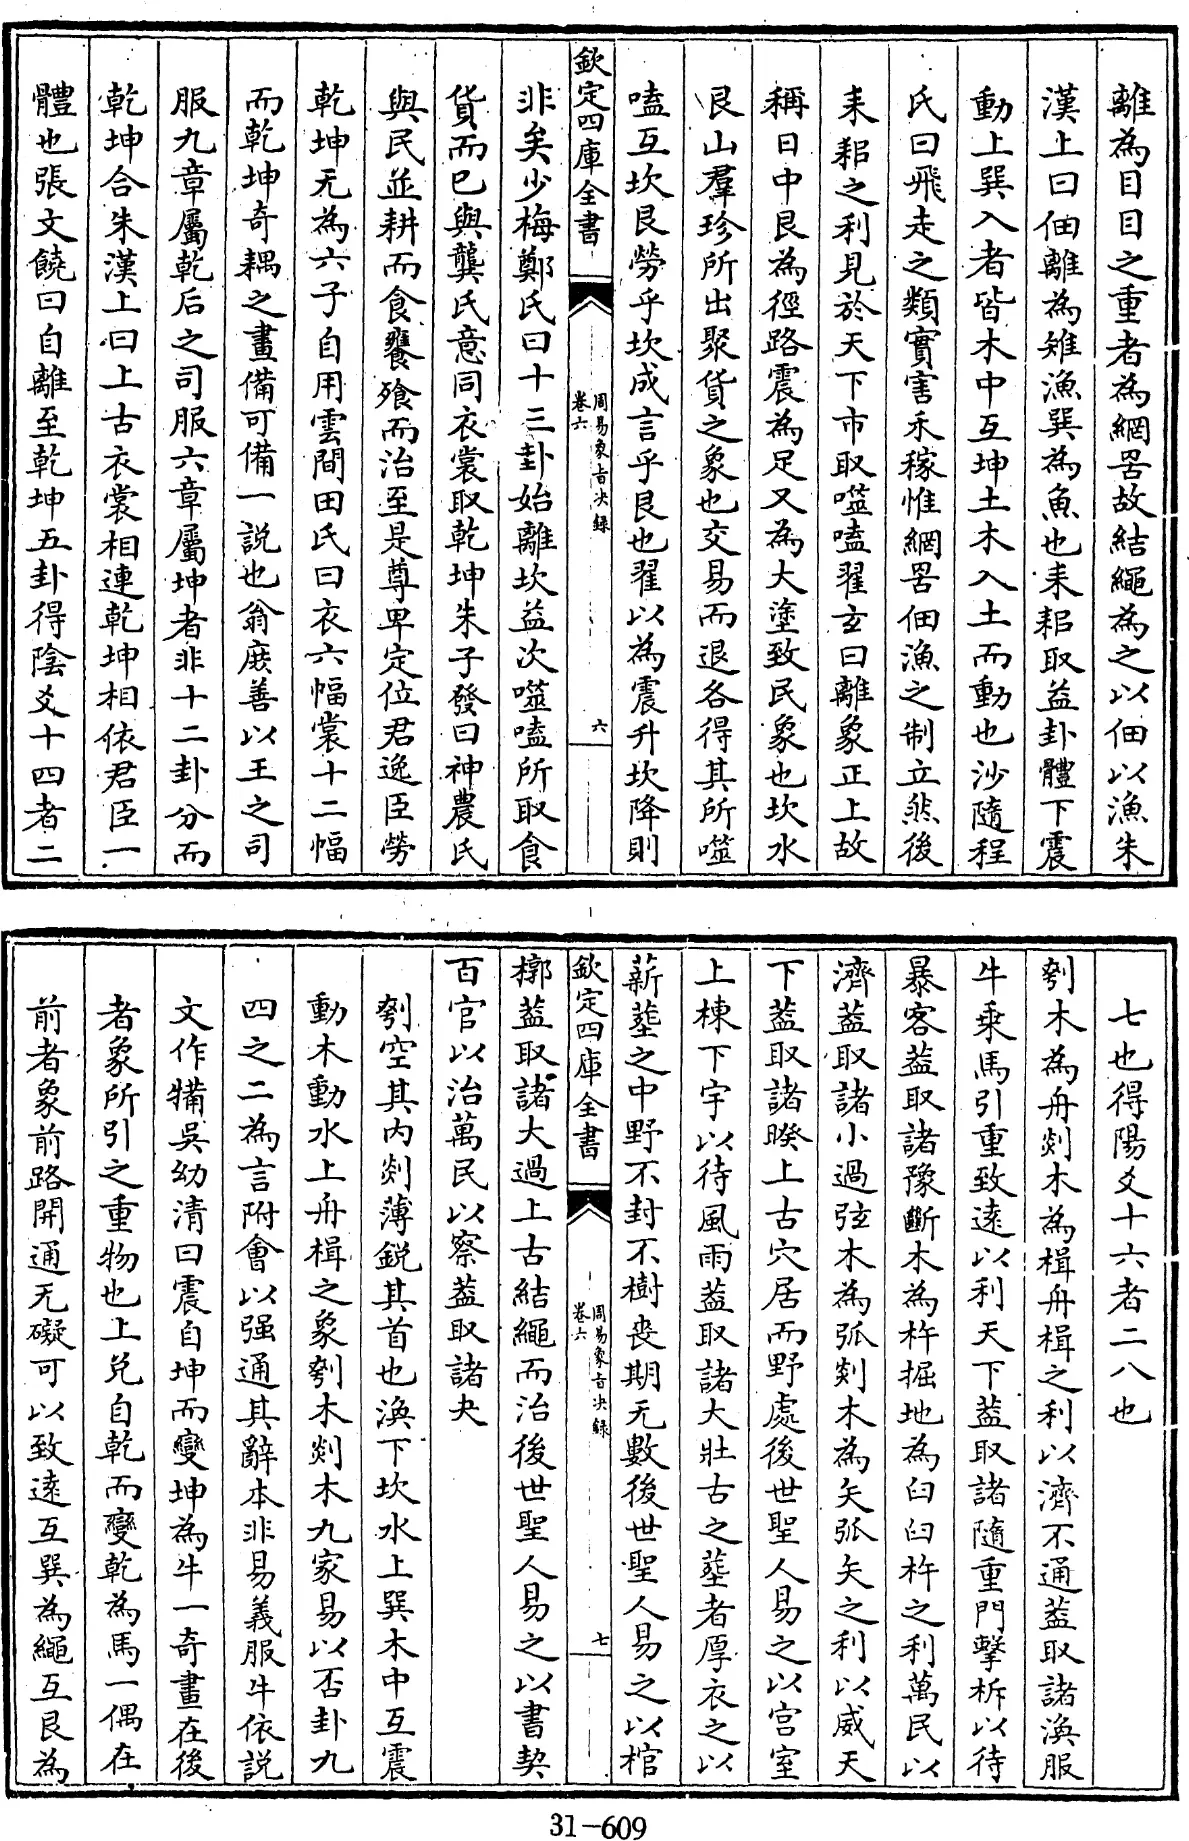 離為目目之重者為網罟故結繩為之以佃以漁朱
漢上曰佃離為雉漁巽為魚也耒耜取益卦體下震
動上巽入者皆木中互坤土木入土而動也沙隨程
氏曰飛走之類實害禾稼惟網罟佃漁之制立然後
耒耜之利見於天下市取噬嗑翟玄曰離象正上故
稱日中艮為徑路震為足又為大塗致民象也坎水
艮山羣珍所出聚貨之象也交易而退各得其所噬
嗑互坎艮勞乎坎成言乎艮也翟以為震升坎降則
欽定四庫全書 周易象旨決錄 卷六 六
非矣少梅鄭氏曰十三卦始離坎益次噬嗑所取食
貨而已與龔氏意同衣裳取乾坤朱子發曰神農氏
與民並耕而食饔飧而治至是尊卑定位君逸臣勞
乾坤无為六子自用雲間田氏曰衣六幅裳十二幅
而乾坤奇耦之畫備可備一說也翁庻善以王之司
服九章屬乾后之司服六章屬坤者非十二卦分而
乾坤合朱漢上曰上古衣裳相連乾坤相依君臣一
體也張文饒曰自離至乾坤五卦得陰爻十四者二
七也得陽爻十六者二八也
刳木為舟剡木為楫舟楫之利以濟不通葢取諸渙服
牛乗馬引重致遠以利天下葢取諸隨重門擊柝以待
暴客葢取諸豫斷木為杵掘地為臼臼杵之利萬民以
濟葢取諸小過弦木為弧剡木為矢弧矢之利以威天
下葢取諸睽上古穴居而野處後世聖人易之以宫室
上棟下宇以待風雨葢取諸大壯古之塟者厚衣之以
薪塟之中野不封不樹喪期无數後世聖人易之以棺
欽定四庫全書 周易象旨決錄 卷六 七
槨葢取諸大過上古結繩而治後世聖人易之以書契
百官以治萬民以察葢取諸夬
刳空其内剡薄鋭其首也渙下坎水上巽木中互震
動木動水上舟楫之象刳木剡木九家易以否卦九
四之二為言附會以强通其辭本非易義服牛依說
文作犕吳幼清曰震自坤而變坤為牛一奇畫在後
者象所引之重物也上兑自乾而變乾為馬一偶在
前者象前路開通无礙可以致遠互巽為繩互艮為
31-609